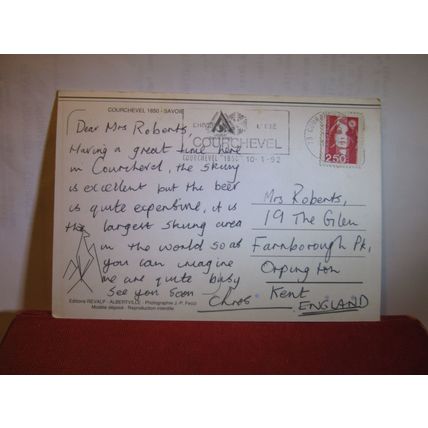 COURCHEVEL 1850 - SAVOIE
Dear Mrs Roberts,
Having a great time here
in Courchevel, the skiing
is excellent but the beer
is quite expensive, it is
the largest skiing area
in the world so as
you can imagine
we are quite busy
See you soon
Chris
COURCHEVEL
COURCHEVEL 1850 10-1-92
2,50
Mrs Roberts,
19 The Glen
Farnborough Pk,
Orpington
Kent
ENGLAND
Editions REVALP - ALBERTVILLE - Photographie J.-P.
Modèle déposé - Reproduction interdite